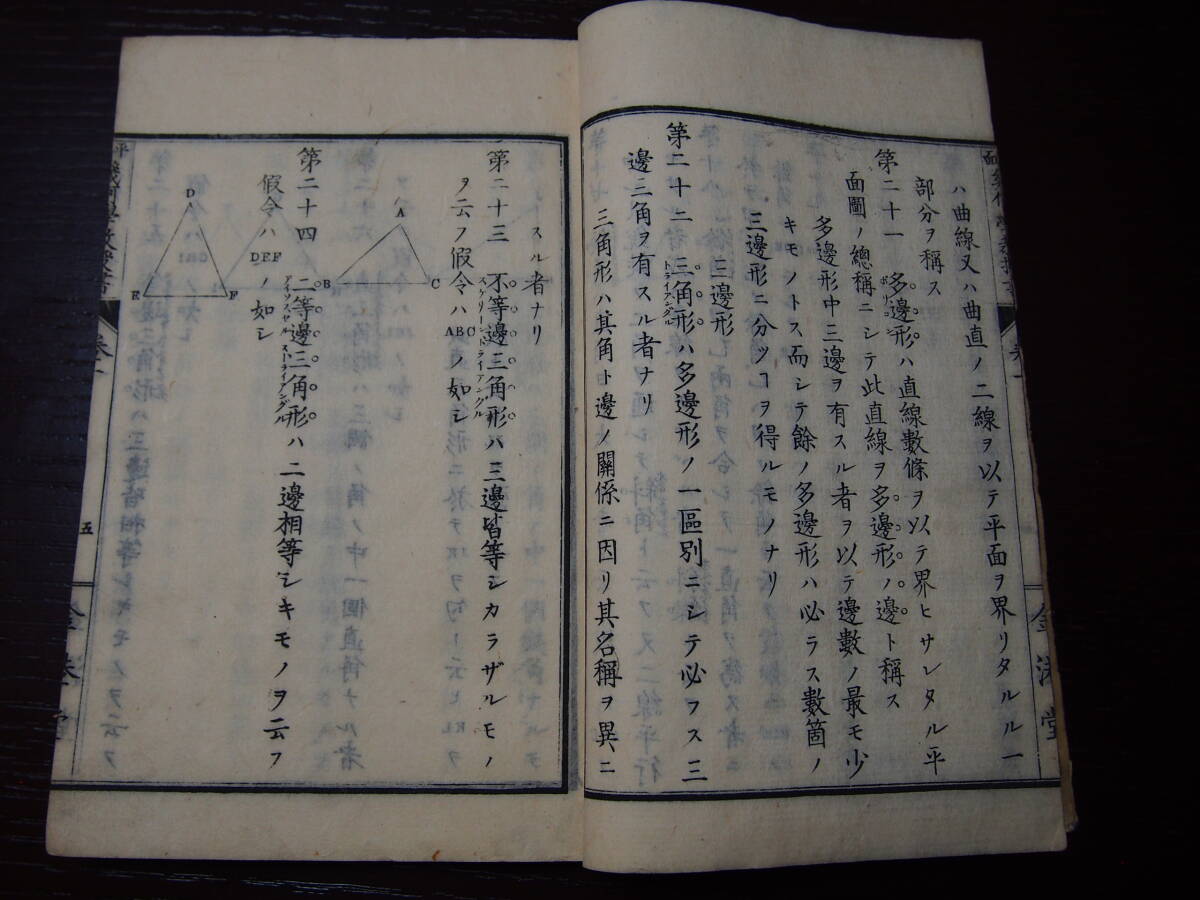 ハ曲線又ハ曲直ノ二線ヲ以テ平面ヲ界リタルル一
部分ヲ稱ス
第二十一 多邊形ハ直線數條ヲ以テ界ヒサレタル平
ポリゴン
面圖ノ總稱ニシテ此直線ヲ多邊形ノ邊ト稱ス
多邊形中三邊ヲ有スル者ヲ以テ邊數ノ最モ少
キモノトス而シテ餘ノ多邊形ハ必ラス數箇ノ
三邊形ニ分ツヿヲ得ルモノナリ
三邊形
第二十二 三角形ハ多邊形ノ一區別ニシテ必フス三
トライアングル
邊三角ヲ有スル者ナリ
三角形ハ其角ト邊ノ關係ニ因リ其名稱ヲ異ニ
金港堂
スル者ナリ
第二十三 不等邊三角形ハ三邊皆等シカラザルモノ
スケリーントライアングル
ヲ云フ假令ハABCノ如シ
A
B
C
第二十四 二等邊三角形ハ二邊相等シキモノヲ云フ
アイソスセルストライアングル
假令ハDEFノ如シ
D
E
F
五